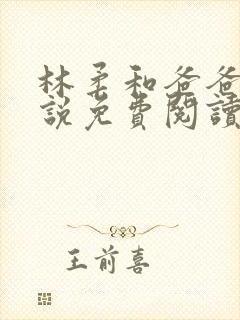 林柔和爸爸
說免費閱讀
王前喜